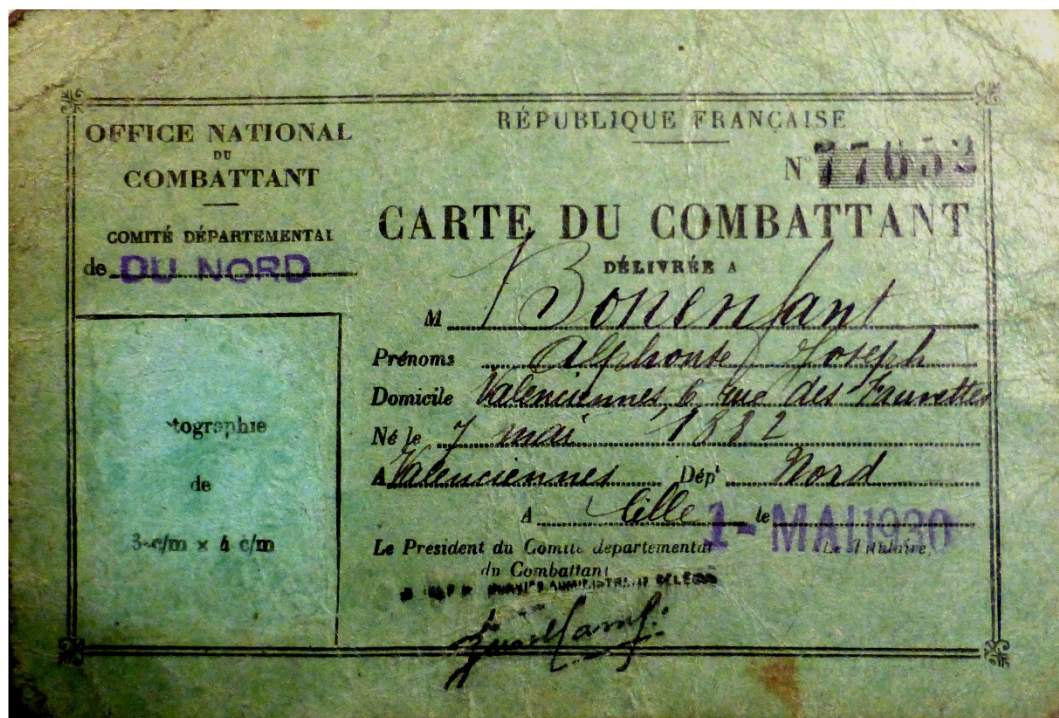 OFFICE NATIONAL
DU
COMBATTANT
COMITÉ DÉPARTEMENTAL
de DU NORD
tographie
de
3 c/m x 4 c/m
RÉPUBLIQUE FRANÇAISE
N° 77652
CARTE DU COMBATTANT
DÉLIVRÉE A
M Bonenfant
Prénoms Alphonse Joseph
Domicile Valenciennes 6 rue des Fauvettes
Né le 7 mai 1882
A Valenciennes Dép^t Nord
A Lille le 1 - MAI 1930
Le Président du Comité départemental Le Titulaire,
du Combattant
ADMINISTRATIF DÉLÉGUÉ